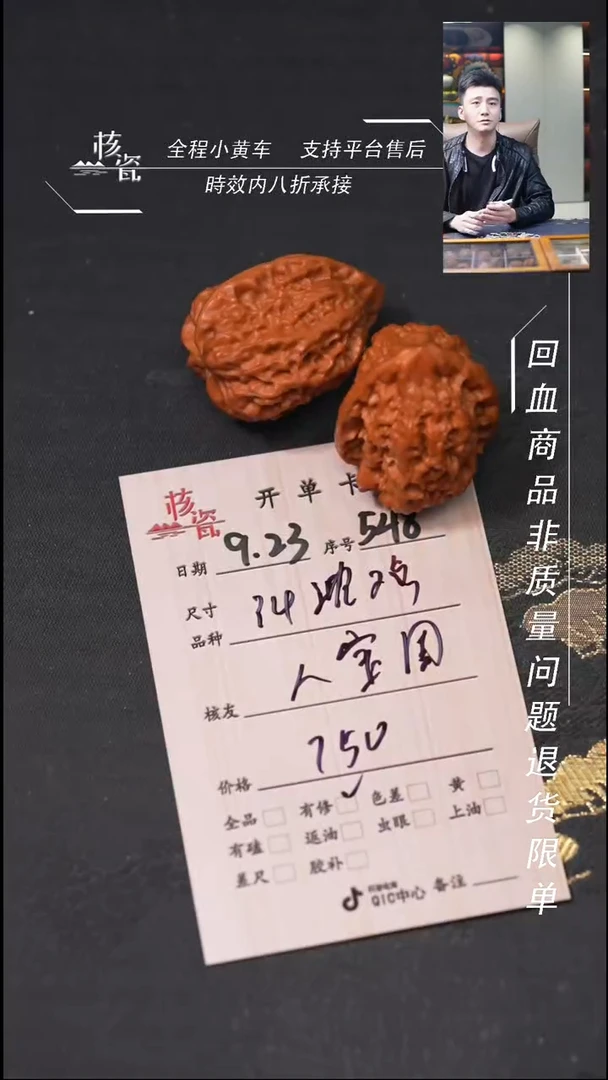 核瓷
全程小黄车 支持平台售后
時效内八折承接
回血商品非质量问题退货限单
核瓷
开单卡
日期 9.23 序号 548
尺寸 34
品种
人家国
核友
750
价格
全品 有修 色差 黄
有磕 返油 虫眼 上油
差尺 胶补
QIC中心 备注